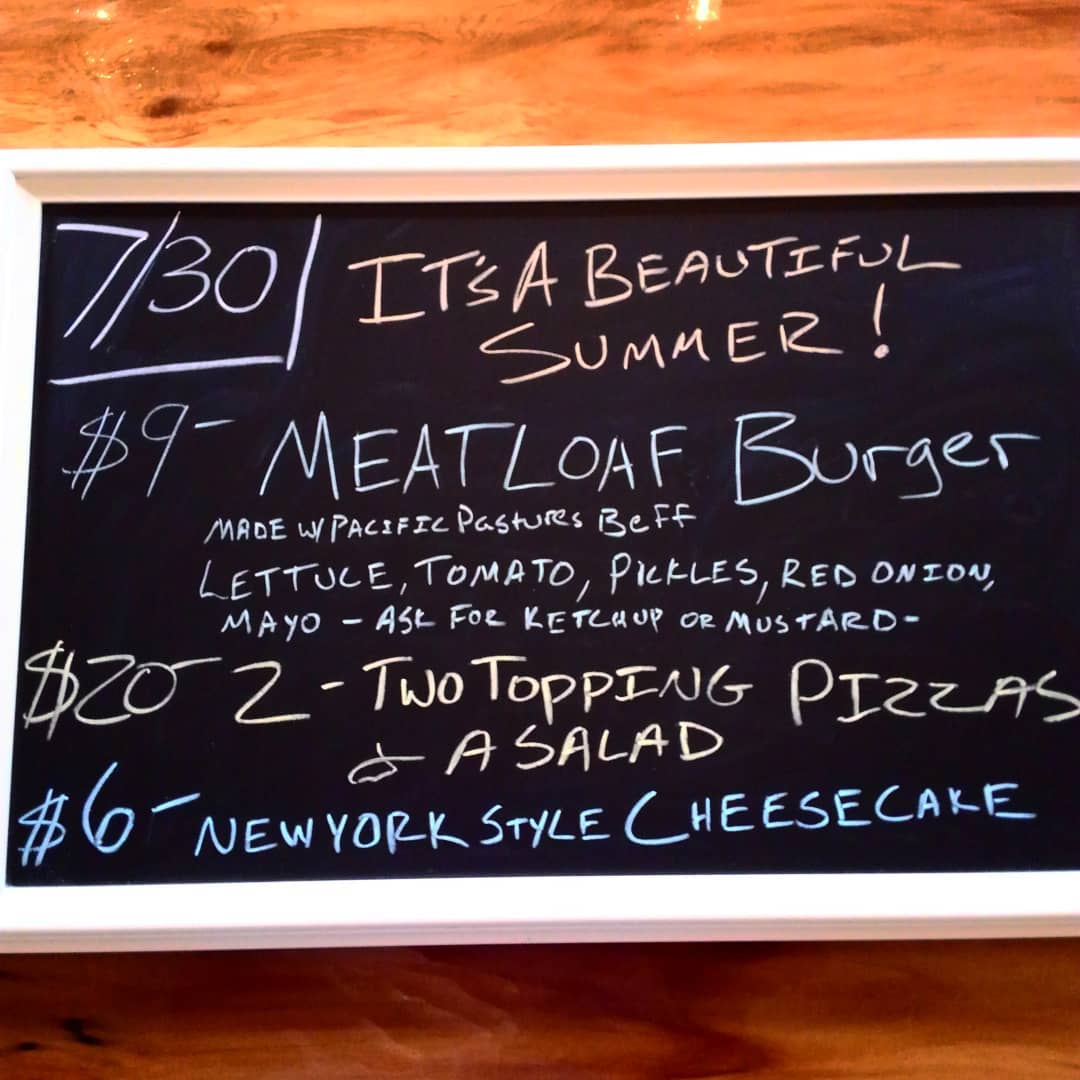 7/30 IT'S A BEAUTIFUL
SUMMER!
$9- MEATLOAF Burger
MADE W/ PACIFIC Pastures Beff
LETTUCE, TOMATO, PICKLES, RED ONION,
MAYO - ASK FOR KETCHUP OR MUSTARD-
$20- 2 - TWO TOPPING PIZZAS
& A SALAD
$6- NEW YORK STYLE CHEESECAKE